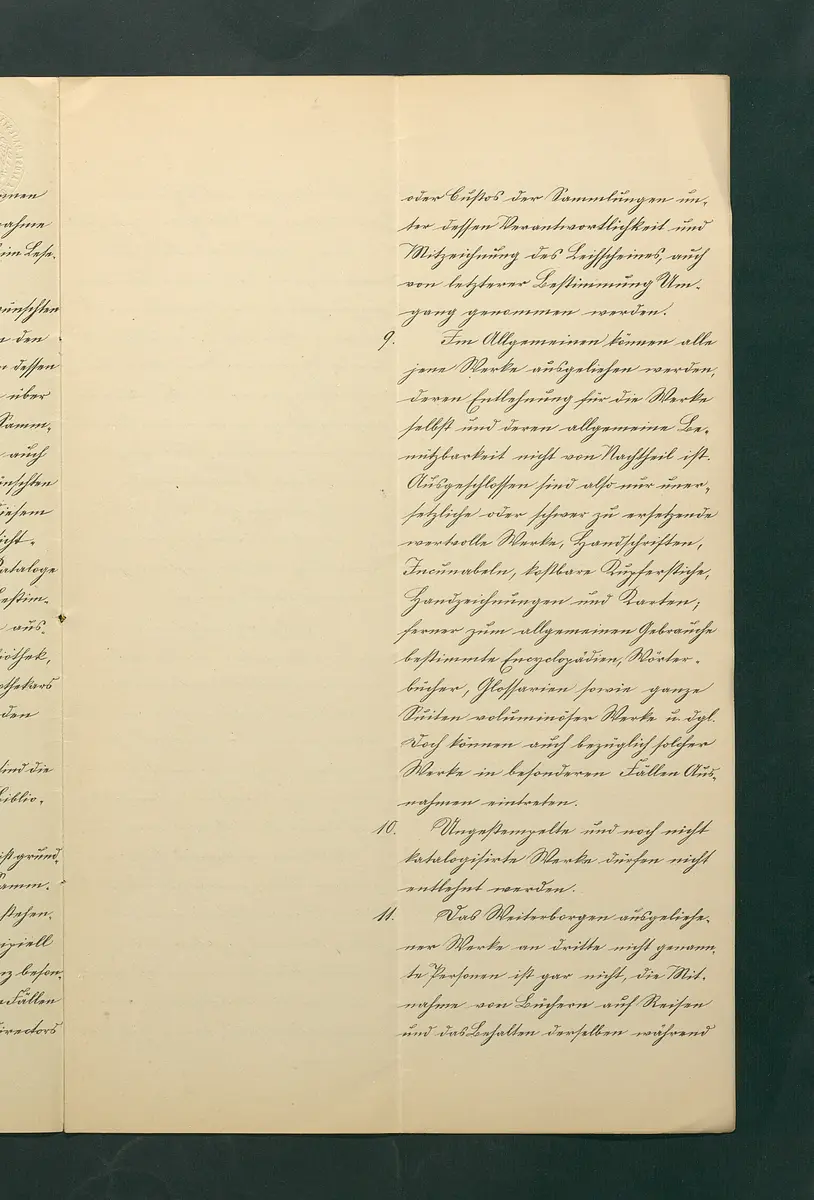 nahme
im Lese-
wünschten
den
dessen
über
Samm-
auch
diesem
Kataloge
aus-
den
sind die
Biblio-
ist grund-
Samm-
stehen.
beson-
Fällen
Directors
oder Custos der Sammlungen un-
ter dessen Verantwortlichkeit und
Mitzeichnung des Leihscheines, auch
von letzterer Bestimmung Um-
gang genommen werden.
9. Im Allgemeinen können alle
jene Werke ausgeliehen werden,
deren Entlehnung für die Werke
selbst und deren allgemeine Be-
nützbarkeit nicht von Nachtheil ist.
Ausgeschlossen sind also nur uner-
setzliche oder schwer zu ersetzende
wertvolle Werke, Handschriften,
Incunabeln, kostbare Kupferstiche,
Handzeichnungen und Karten;
ferner zum allgemeinen Gebrauche
bestimmte Encyclopädien, Wörter-
bücher, Glossarien sowie ganze
Suiten voluminöser Werke u. dgl.
Doch können auch bezüglich solcher
Werke in besonderen Fällen Aus-
nahmen eintreten.
10. Ungestempelte und noch nicht
katalogisirte Werke dürfen nicht
entlehnt werden.
11. Das Weiterborgen ausgeliehe-
ner Werke an dritte nicht genann-
te Personen ist gar nicht, die Mit-
nahme von Büchern auf Reisen
und das Behalten derselben während